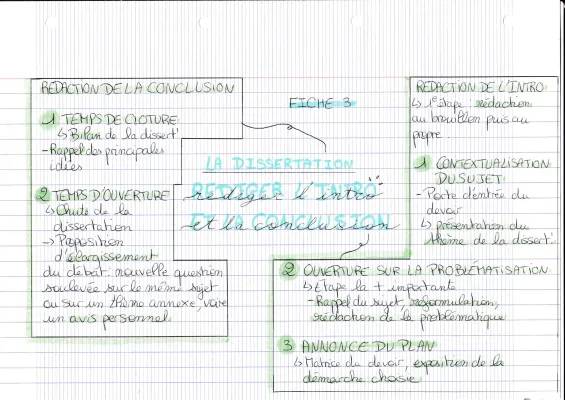 FICHE 3
LA DISSERTATION
RÉDIGER L'INTRO
ET LA CONCLUSION
rédiger l'intro
et la conclusion
REDACTION DE LA CONCLUSION
1 TEMPS DE CLOTURE
↳ Bilan de la dissert°
- Rappel des principales
idées
2 TEMPS D'OUVERTURE
↳ Chute de la
dissertation
→ Proposition
d'élargissement
du débat: nouvelle question
soulevée sur le même sujet
ou sur un thème annexe, voire
un avis personnel
REDACTION DE L'INTRO:
↳ 1e étape : rédaction
au brouillon puis au
propre
1 CONTEXTUALISATION
DU SUJET:
- Porte d'entrée du
devoir
↳ présentation du
thème de la dissert°
2 OUVERTURE SUR LA PROBLÉMATISATION
↳ Etape la + importante
- Rappel du sujet, reformulation,
rédaction de la problématique
3 ANNONCE DU PLAN
↳ Matrice du devoir, exposition de la
démarche choisie